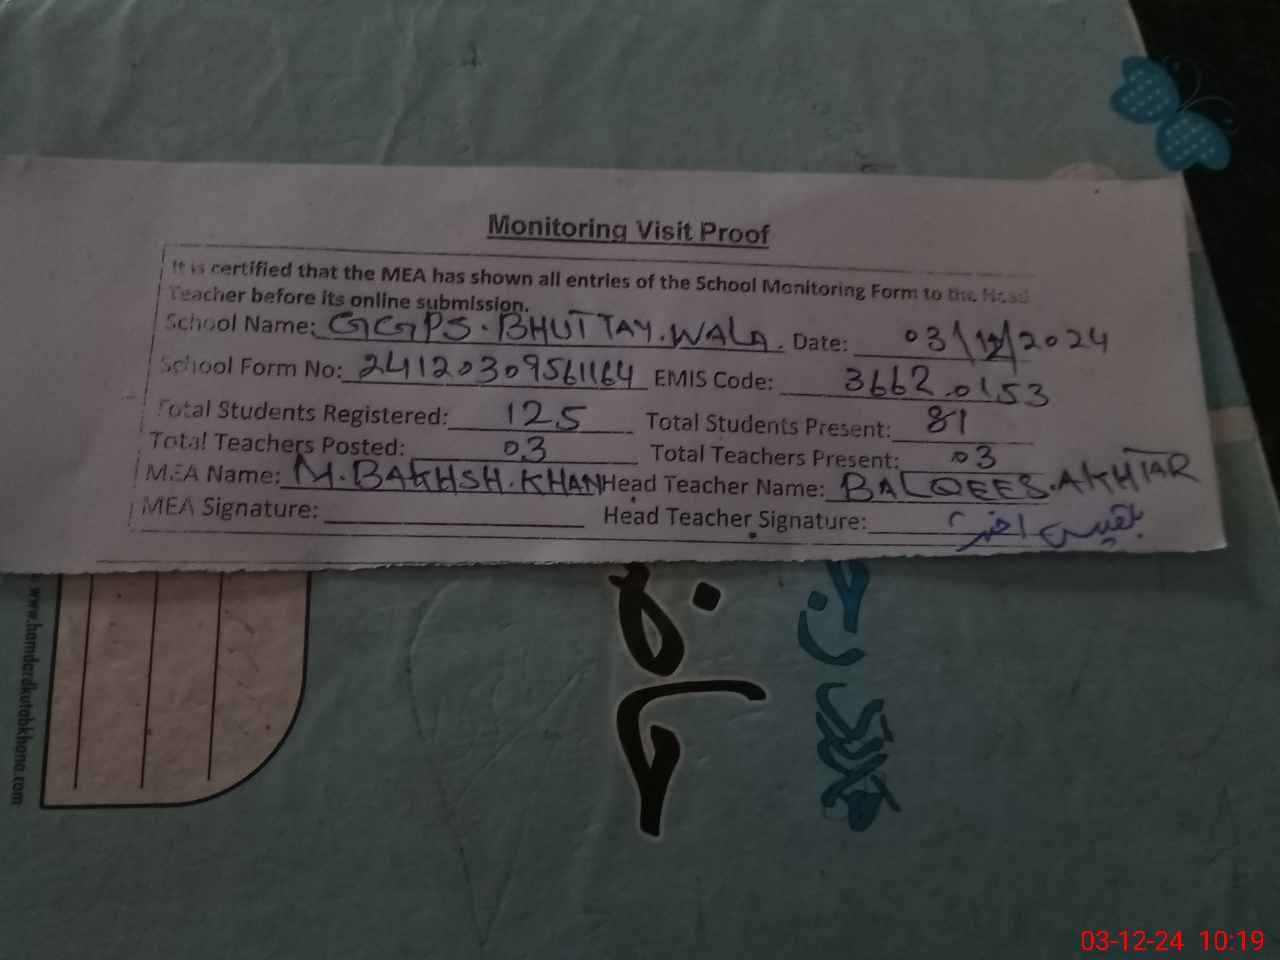 Monitoring Visit Proof
It is certified that the MEA has shown all entries of the School Monitoring Form to the Head
Teacher before its online submission.
School Name: GGPS. BHUTTAY. WALA. Date: 03/12/2024
School Form No: 24120309561164 EMIS Code: 36620153
Total Students Registered: 125 Total Students Present: 81
Total Teachers Posted: 03 Total Teachers Present: 03
MEA Name: M. BAKHSH. KHAN Head Teacher Name: BALQEES. AKHTAR
MEA Signature: Head Teacher Signature: بلقیس اختر
www.hamdardkutabkhana.com
03-12-24 10:19